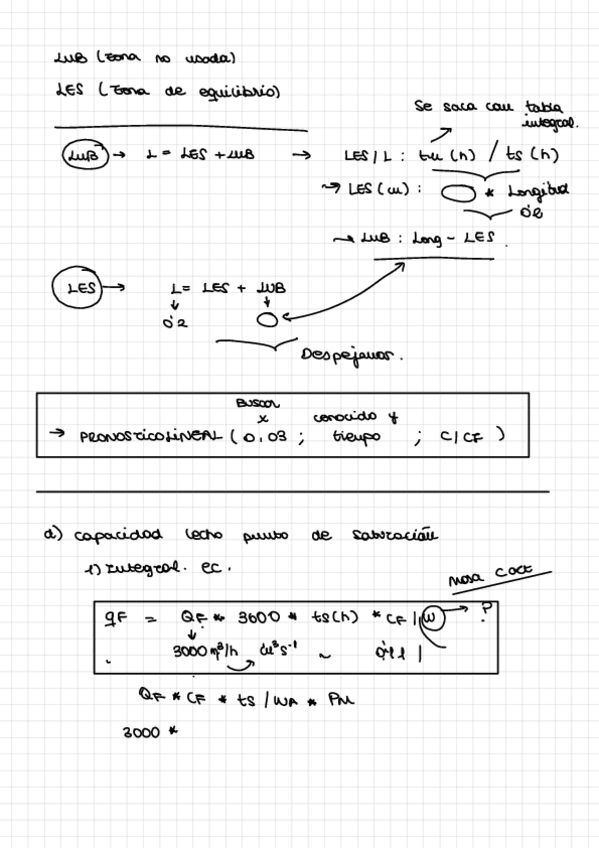 LUB (zona no usada)
LES (zona de equilibrio)
Se saca con tabla
integral.
LUB → L = LES + LUB → LES/L : tu (h) / ts (h)
→ LES (m) : * Longitud
0'2
→ LUB : Long - LES .
LES → L = LES + LUB
0'2
Despejamos .
Buscar
x conocido y
→ PRONOSTICO.LINEAL ( 0,03 ; tiempo ; C/CF )
d) capacidad lecho punto de saturación
1) Integral. ec.
masa coct
qF = QF * 3600 * ts(h) * CF / w → ?
3000 m³/h dm³ s⁻¹ ~ 0'11 |
QF * CF * ts / WA * PM
3000 *